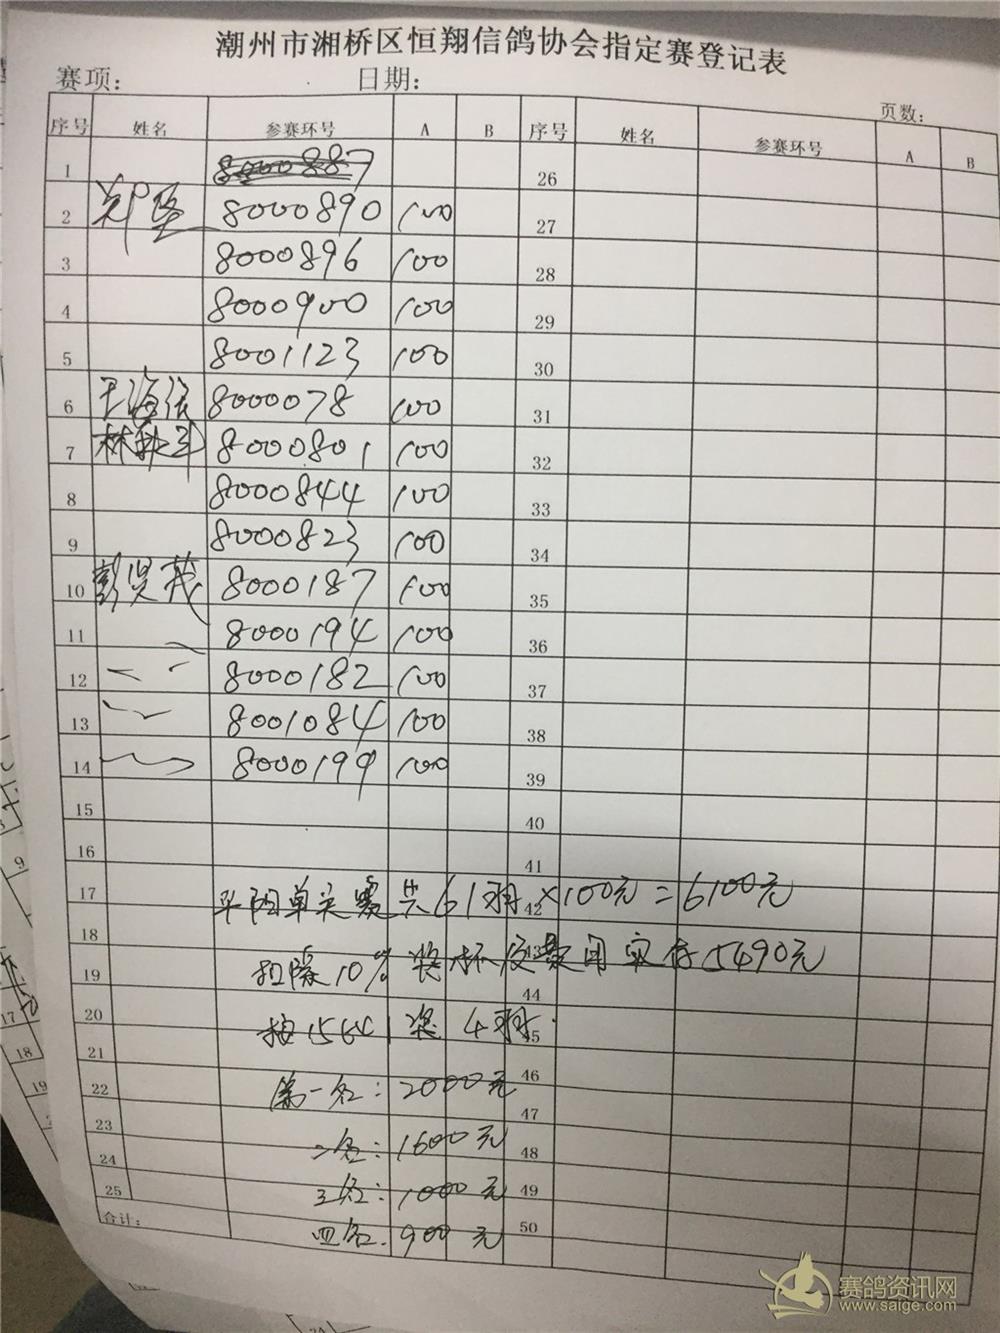 潮州市湘桥区恒翔信鸽协会指定赛登记表
赛项： 日期：
页数：
序号 姓名 参赛环号 A B 序号 姓名 参赛环号 A B
1 8000887 26
2 郑坚 8000890 100 27
3 8000896 100 28
4 8000900 100 29
5 8001123 100 30
6 王海 8000078 100 31
7 林 8000801 100 32
8 8000844 100 33
9 8000823 100 34
10 彭贤茂 8000187 100 35
11 8000194 100 36
12 8000182 100 37
13 8001084 100 38
14 8000199 100 39
15 40
16 41
17 平阳单关赛共61羽×100元=6100元 42
18 43
19 扣除10%奖杯及费用实存5490元 44
20 按15 1奖4羽. 45
21 46
22 第一名：2000元 47
23 二名：1600元 48
24 三名：1000元 49
25 四名：900元 50
合计：
赛鸽资讯网
www.saige.com